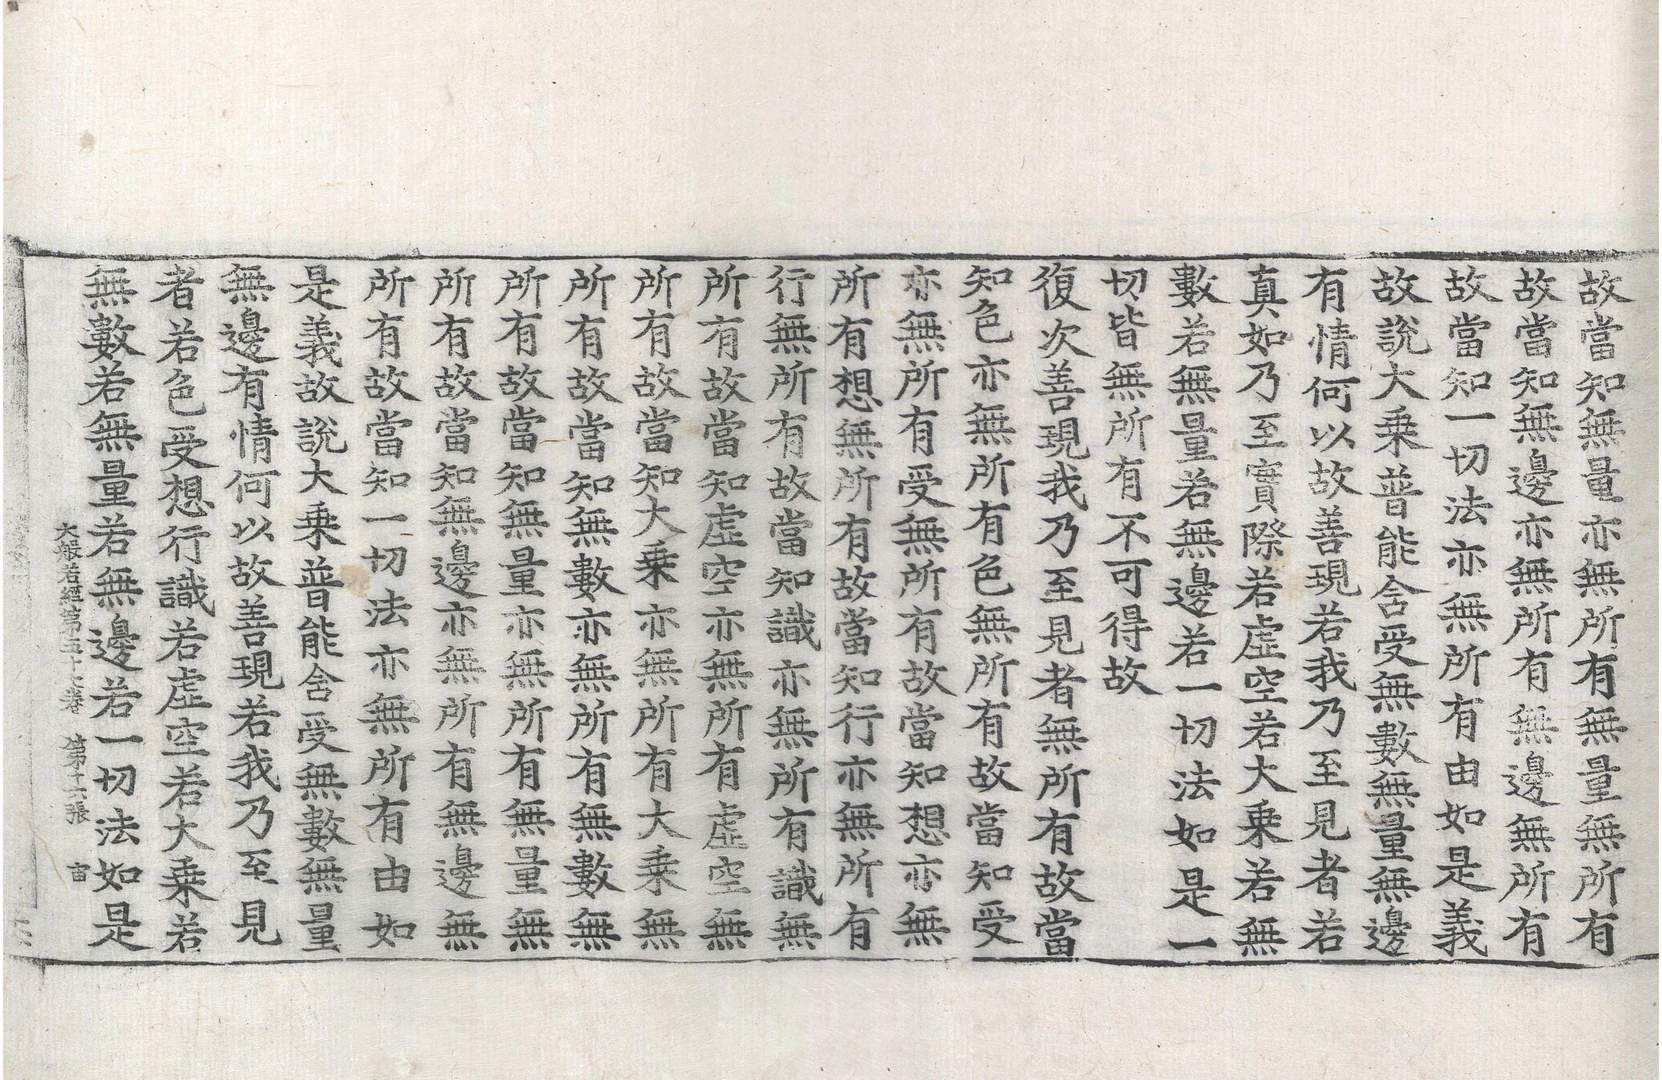 故當知無量亦無所有無量無所有
故當知無邊亦無所有無邊無所有
故當知一切法亦無所有由如是義
故說大乗普能含受無數無量無邊
有情何以故善現若我乃至見者若
真如乃至實際若虛空若大乗若無
數若無量若無邊若一切法如是一
切皆無所有不可得故
復次善現我乃至見者無所有故當
知色亦無所有色無所有故當知受
亦無所有受無所有故當知想亦無
所有想無所有故當知行亦無所有
行無所有故當知識亦無所有識無
所有故當知虛空亦無所有虛空無
所有故當知大乗亦無所有大乗無
所有故當知無數亦無所有無數無
所有故當知無量亦無所有無量無
所有故當知無邊亦無所有無邊無
所有故當知一切法亦無所有由如
是義故說大乗普能含受無數無量
無邊有情何以故善現若我乃至見
者若色受想行識若虛空若大乗若
無數若無量若無邊若一切法如是
大般若經第五十六卷 第十六張 宙